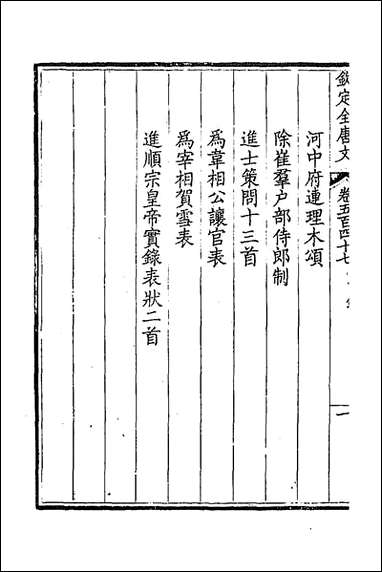 欽定全唐文
卷五百四十七
一
河中府連理木頌
除崔羣户部侍郎制
進士策問十三首
為韋相公讓官表
為宰相賀雪表
進順宗皇帝實錄表狀二首